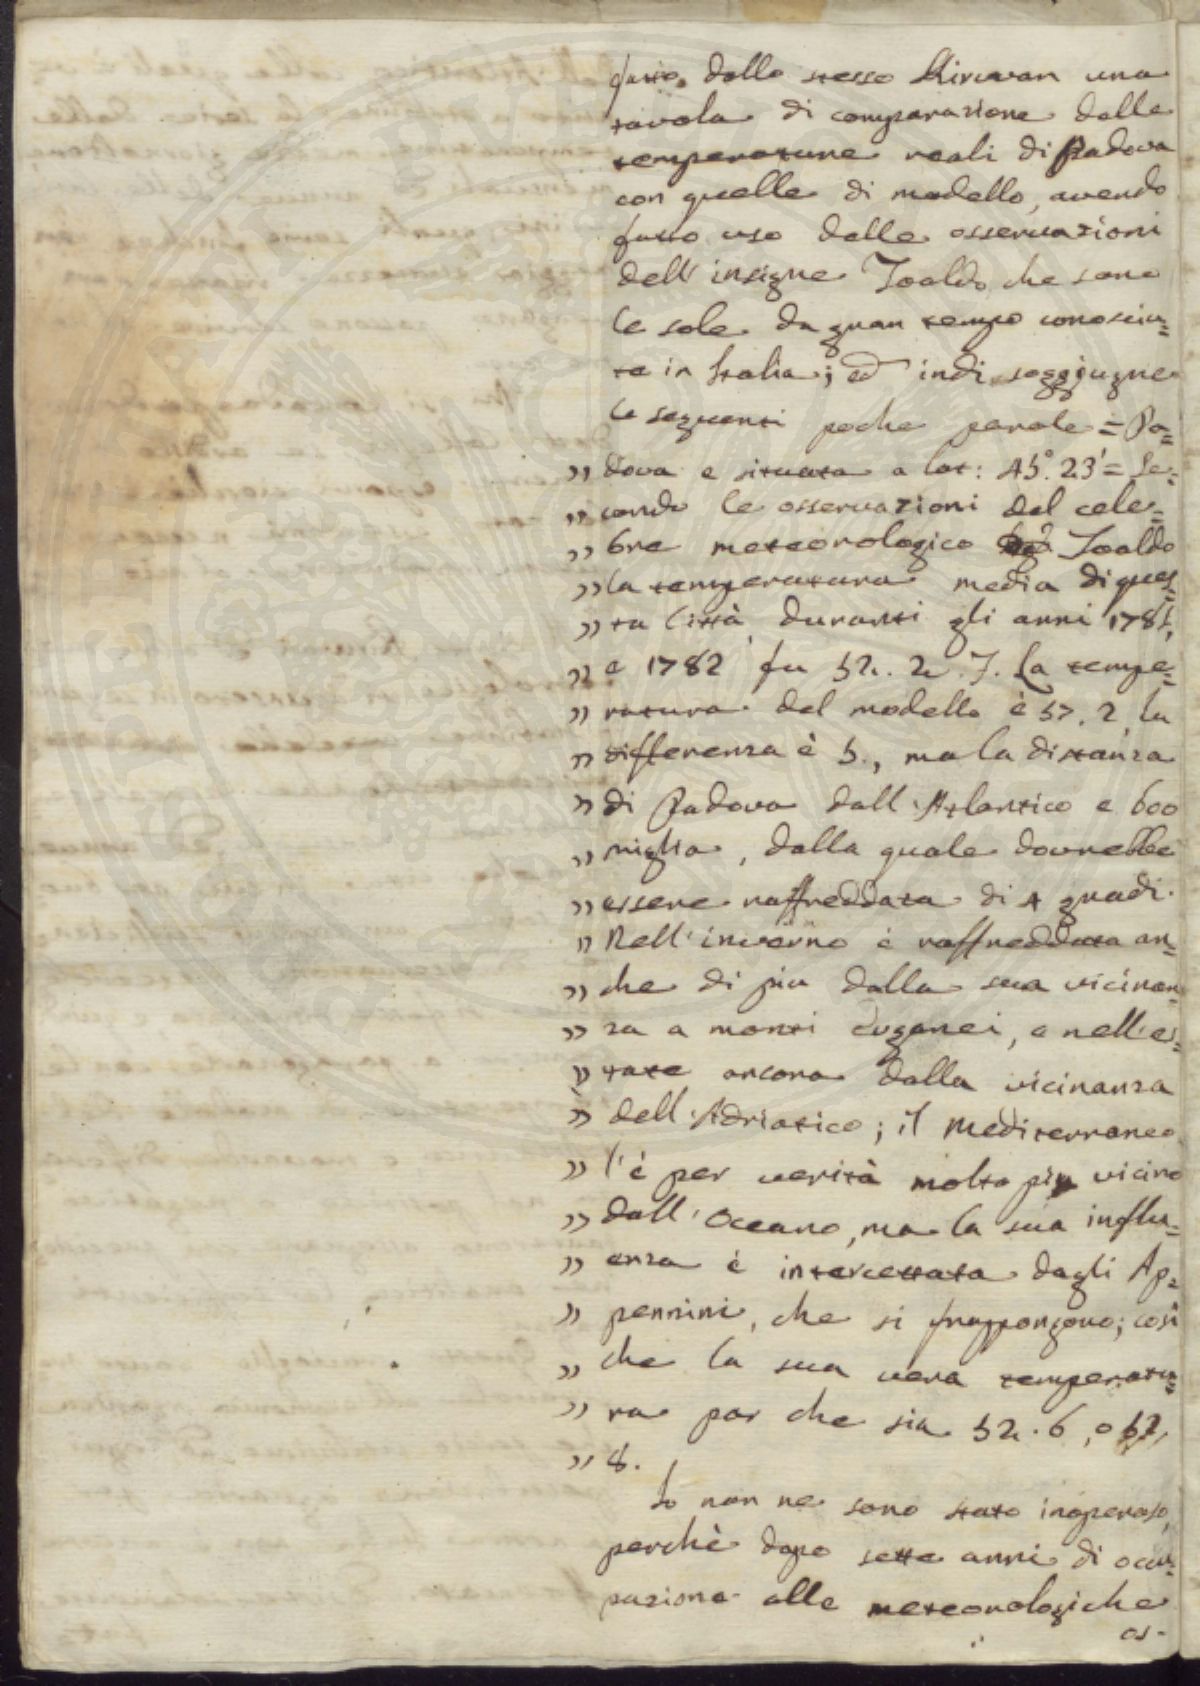 fatto dallo stesso Kirwan una
tavola di comparazione delle
temperature reali di Padova
con quelle di modello, avendo
fatto uso delle osservazioni
dell'insigne Toaldo che sono
le sole da gran tempo conosciu=
te in Italia; ed indi soggiugne
le seguenti poche parole = Pa=
„ dova e situata a lat: 45.° 23' = Se=
„ condo le osservazioni del cele=
„ bre meteorologico Toaldo
„ la temperatura media di ques=
„ ta Città duranti gli anni 1781,
„ e 1782 fu 52. 2. La tempe=
„ ratura del modello è 57. 2, la
„ differenza è 5., ma la distanza
„ di Padova dall'Atlantico e 600
„ miglia, dalla quale dovrebbe
„ essere raffreddata di 4 gradi.
„ Nell'inverno è raffreddata an=
„ che di piu dalla sua vicinan=
„ za a monti Euganei, e nell'es=
„ tate ancora dalla vicinanza
„ dell'Adriatico; il Mediterraneo
„ l'è per verità molto più vicino
„ dall'Oceano, ma la sua influ=
„ enza è intercettata dagli Ap=
„ pennini, che si frappongono; così
„ che la sua vera temperatu=
„ ra par che sia 52. 6, o 52,
„ 8.
Io non ne sono stato inoperoso,
perchè dopo sette anni di occu=
pazione alle meteorologiche
os-